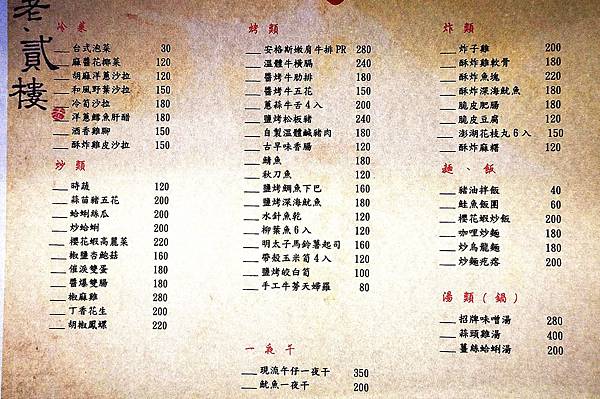 老、貳樓
冷菜
台式泡菜 30
麻醬花椰菜 120
胡麻洋蔥沙拉 120
和風野蔬沙拉 150
冷筍沙拉 180
洋蔥鱈魚肝醋 180
酒香雞腳 150
酥炸雞皮沙拉 150
炒類
時蔬 120
蒜苗豬五花 200
蛤蜊絲瓜 200
炒蛤蜊 200
櫻花蝦高麗菜 220
椒鹽杏鮑菇 160
催淚雙蛋 180
醬爆雙腸 180
椒麻雞 280
丁香花生 200
胡椒鳳螺 220
烤類
安格斯嫩肩牛排PR 280
溫體牛橫膈 240
醬烤牛肋排 180
醬烤牛五花 150
蔥蒜牛舌4入 200
鹽烤松板豬 240
自製溫體鹹豬肉 180
古早味香腸 120
鯖魚 180
秋刀魚 120
鹽烤鯛魚下巴 160
鹽烤深海魷魚 180
水針魚乾 120
柳葉魚6入 120
明太子馬鈴薯起司 160
帶殼玉米筍4入 120
鹽烤皎白筍 100
手工牛蒡天婦羅 80
一夜干
現流午仔一夜干 350
魷魚一夜干 200
炸類
炸子雞 200
酥炸雞軟骨 180
酥炸魚塊 220
酥炸深海魷魚 180
脆皮肥腸 180
脆皮豆腐 120
澎湖花枝丸6入 150
酥炸麻糬 120
麵、飯
豬油拌飯 40
鮭魚飯圑 60
櫻花蝦炒飯 200
咖哩炒麵 180
炒烏龍麵 180
炒麵疙瘩 200
湯類(鍋)
招牌味噌湯 280
蒜頭雞湯 400
薑絲蛤蜊湯 200